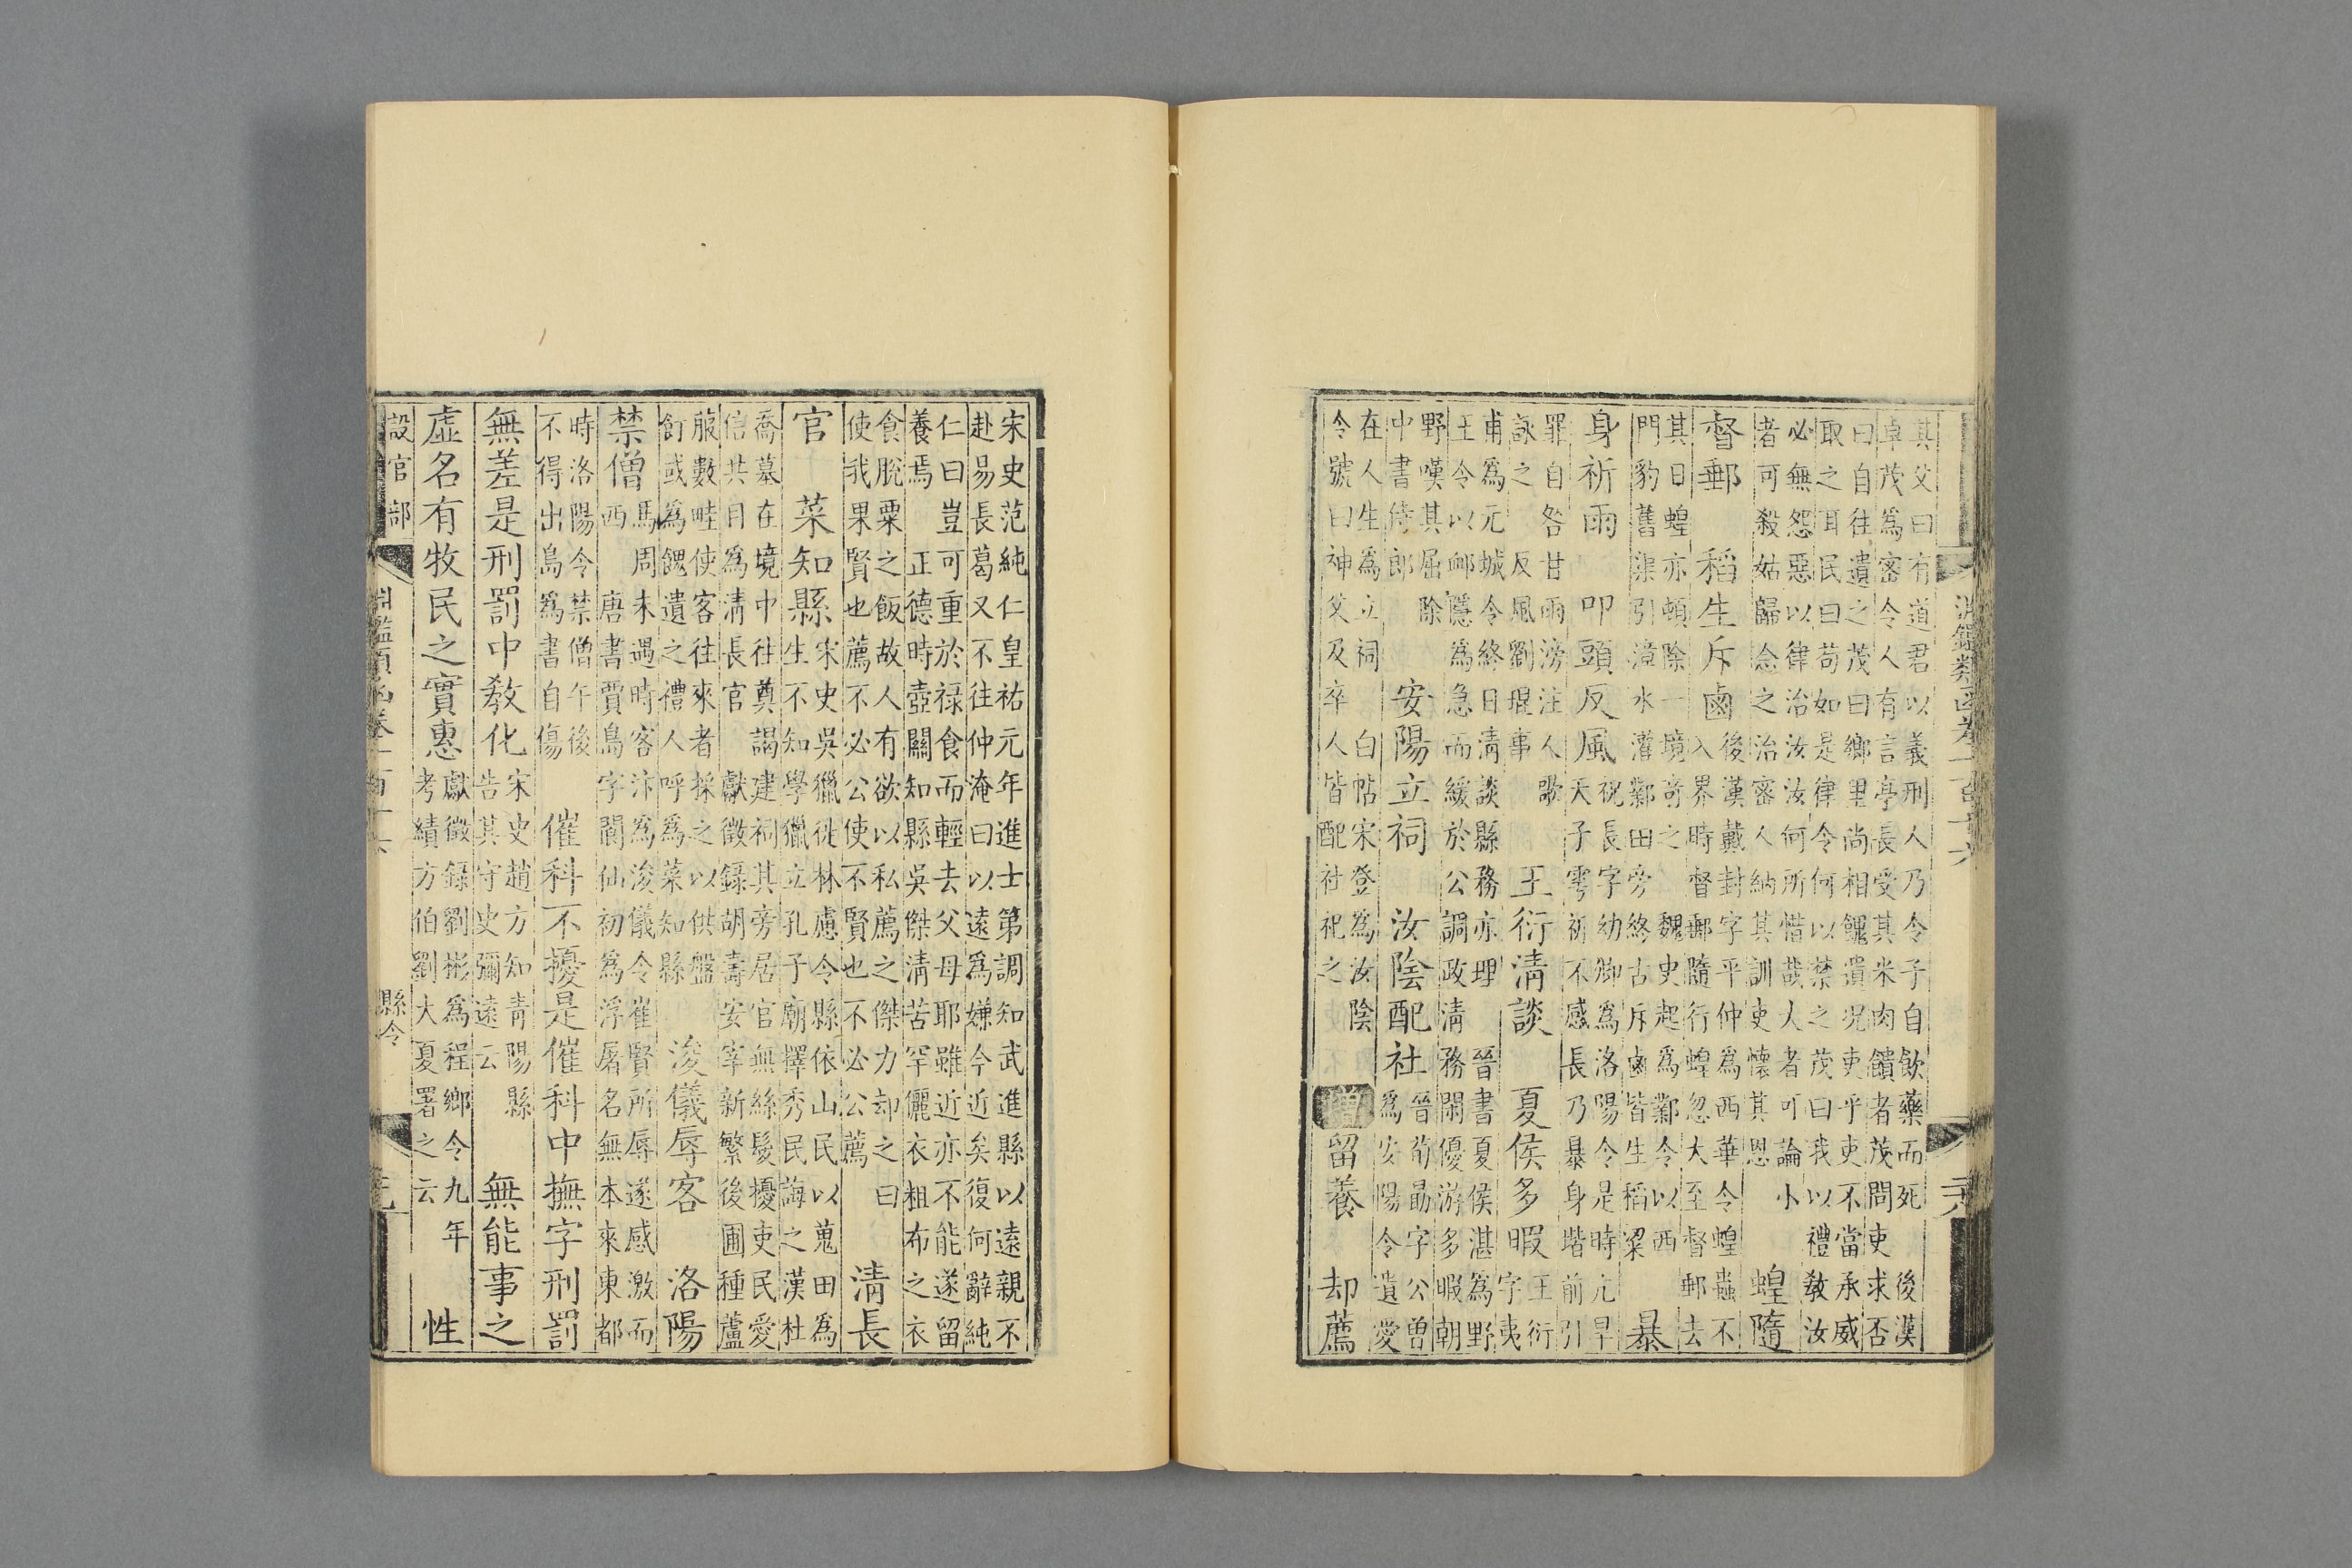 淵鑑類函卷一百十六
其父曰有道君以義刑人乃令子自飲藥而死 後漢
卓茂為密令人有言亭長受其米肉饋者茂問吏求否
曰自往遺之茂曰鄉里尚相餽遺况吏乎吏不當承威
取之耳民曰苟如是律令何以禁之茂曰我以禮教汝
必無怨惡以律治汝汝何所惜哉大者可論小
者可殺姑歸念之治密人納其訓吏懷其恩
蝗隨
督郵
稻生斥鹵
後漢戴封字平仲為西華令蝗蟲不
入界時督郵隨行蝗忽大至督郵去
其日蝗亦頓除一境竒之 魏史起為鄴令以西
門豹舊渠引漳水灌鄴田旁終古斥鹵皆生稻粱
暴
身祈雨
叩頭反風
祝長字幼卿為洛陽令是時亢旱
天子雩祈不感長乃暴身堦前引
罪自咎甘雨滂注人歌
詠之 反風劉琨事
王衍清談
夏侯多暇
王衍
字夷
甫為元城令終日清談縣務亦理 晉書夏侯湛為野
王令以卹隱為急而緩於公調政清務閑優游多暇朝
野嘆其屈除
中書侍郎
安陽立祠
汝陰配社
晉荀勗字公曾
為安陽令遺愛
在人生為立祠 白帖宋登為汝陰
令號曰神父及卒人皆配社祀之
增
留養
却薦
宋史范純仁皇祐元年進士第調知武進縣以遠親不
赴易長葛又不往仲淹曰以遠為嫌今近矣復何辭純
仁曰豈可重於祿食而輕去父母耶雖近亦不能遂留
養焉 正德時壺關知縣吳傑清苦罕儷衣粗布之衣
食脫粟之飯故人有欲以私薦之傑力却之曰
使我果賢也薦不必公使不賢也不必公薦
清長
官
菜知縣
宋史吳獵從林慮令縣依山民以蒐田為
生不知學獵立孔子廟擇秀民誨之漢杜
喬墓在境中往奠謁建祠其旁居官無絲髮擾吏民愛
信共目為清長官 獻徵錄胡壽安宰新繁後圃種蘆
菔數畦使客往來者採之以供盤
飣或為餽遺之禮人呼為菜知縣
浚儀辱客
洛陽
禁僧
馬周未遇時客汴為浚儀令崔賢所辱遂感激而
西 唐書賈島字閬仙初為浮屠名無本來東都
時洛陽令禁僧午後
不得出島為書自傷
催科不擾是催科中撫字刑罰
無差是刑罰中教化
宋史趙方知青陽縣
告其守史彌遠云
無能事之
虛名有牧民之實惠
獻徵錄劉彬為程鄉令九年
考績方伯劉大夏署之云
性
設官部
淵鑑類函卷一百十六
縣令